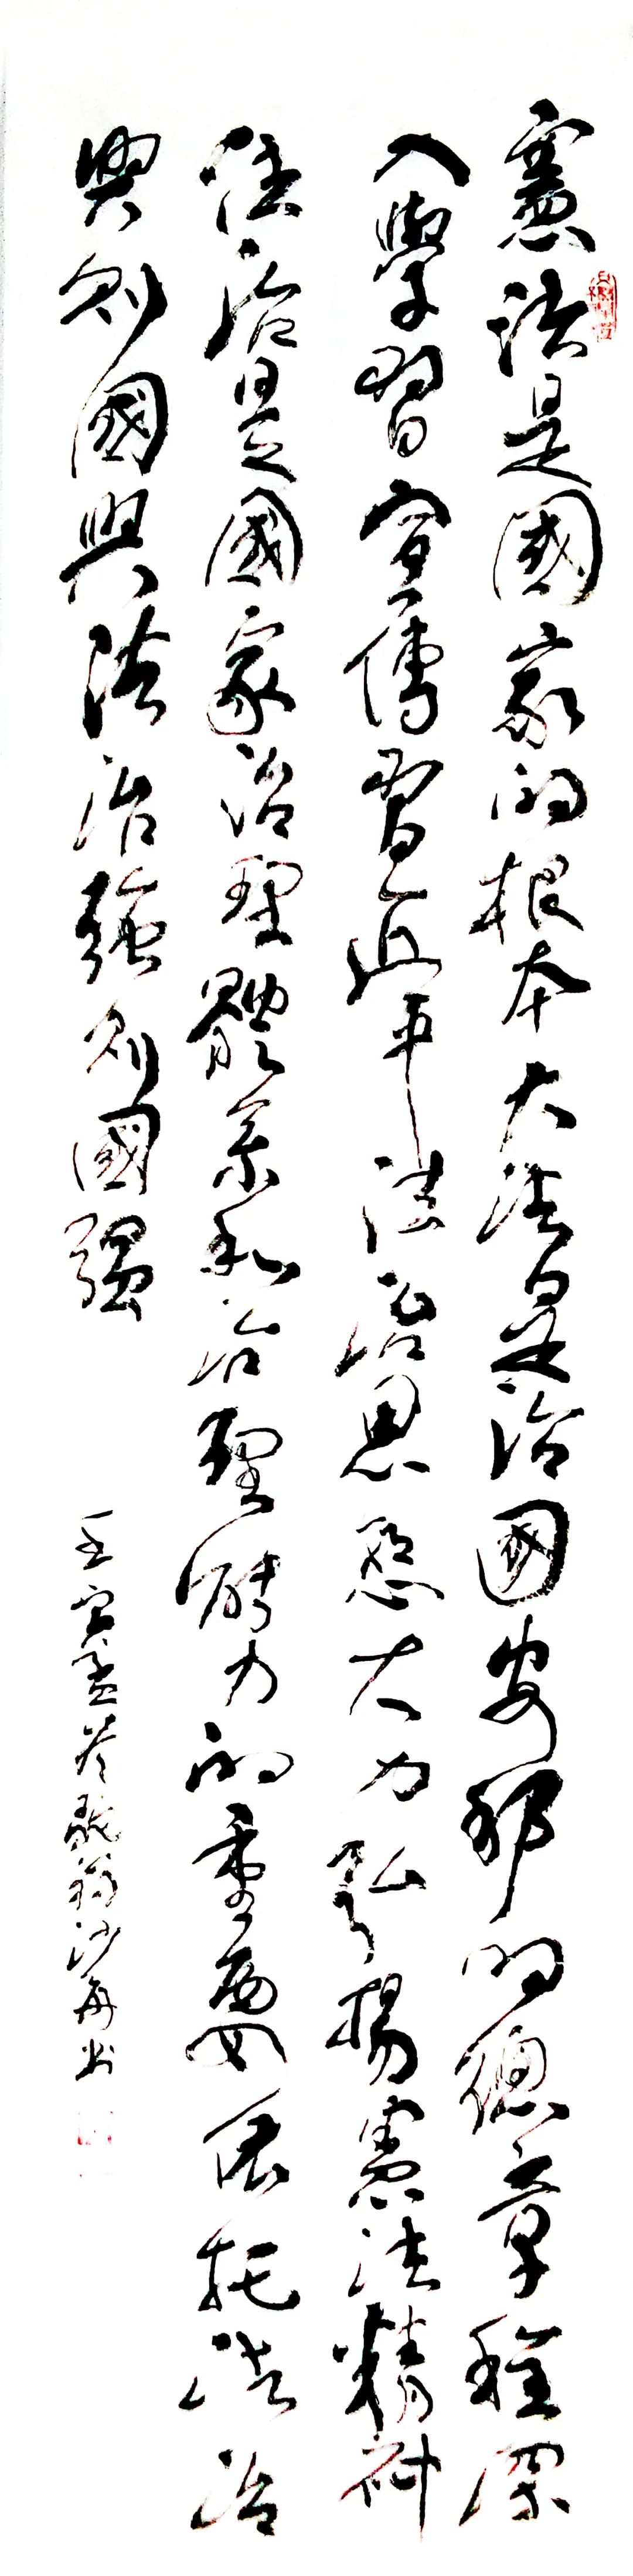 憲法是國家的根本大法是治國安邦的總章程深
入學習宣傳習近平法治思想大力弘揚憲法精神
法治是國家治理體系和治理能力的重要依托法治
興則國興法治強則國强